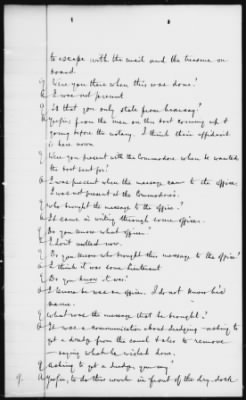 to escape with the mail and the treasure on
board.
Q Were you there when this was done?
A I was not present
Q Is that you only state from hearsay?
A Yes, from the men on the boat coming up &
going before the notary. I think their affidavit
is here now.
Q Were you present with the Commodore when he wanted
the boat sent for?
A I was present when the message came to the office.
I was not present at the Commodore's.
Q Who brought the message to the office?
A It came in writing through some officer.
Q Do you know what officer?
A I don't recollect now.
Q Do you know who brought this message to the office?
A I think it was some lieutenant
Q Do you know it was?
A I know he was an officer. I do not know his
name.
Q What was the message that he brought?
A It was a communication about dredging - asking to
get a dredge from the canal & also to remove
- saying what he wished done.
Q Asking to get a dredge, you say?
A Yes, to do this work in front of the dry dock
9.